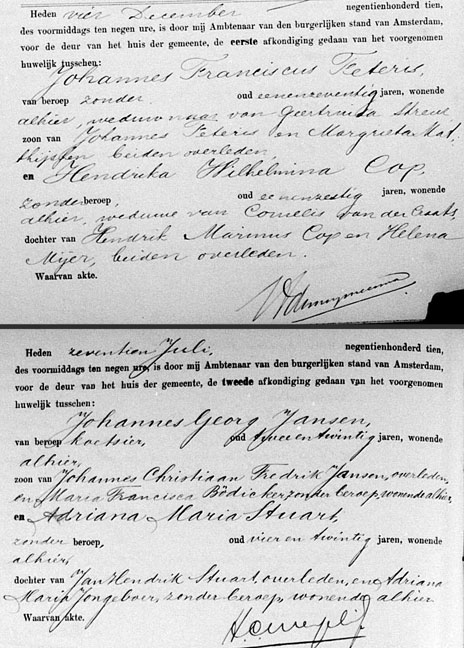 Heden vier December negentienhonderd tien,
des voormiddags ten negen ure, is door mij Ambtenaar van den burgerlijken stand van Amsterdam,
voor de deur van het huis der gemeente, de eerste afkondiging gedaan van het voorgenomen
huwelijk tusschen:
Johannes Franciscus Peteris,
van beroep zonder oud eenenzeventig jaren, wonende
alhier, weduwnaar van Geertruida
zoon van Johannes Peteris en Margrieta Mat-
thijssen beiden overleden
en Hendrika Wilhelmina Cop,
zonder beroep, oud eenenzestig jaren, wonende
alhier, weduwe van Cornelis van der
dochter van Hendrik Marinus Cop en Helena
Mijer, beiden overleden.
Waarvan akte.
Heden zeventien Juli, negentienhonderd tien,
des voormiddags ten negen ure, is door mij Ambtenaar van den burgerlijken stand van Amsterdam,
voor de deur van het huis der gemeente, de tweede afkondiging gedaan van het voorgenomen
huwelijk tusschen:
Johannes Georg Jansen,
van beroep koetsier, oud twee en twintig jaren, wonende
alhier,
zoon van Johannes Christiaan Fredrik Jansen, overleden,
en Maria Francisca Bödicker zonder beroep, wonende alhier,
en Adriana Maria Stuart,
zonder beroep, oud vier en twintig jaren, wonende
alhier,
dochter van Jan Hendrik Stuart, overleden, en Adriana
Maria Jongeboer, zonder beroep, wonende alhier
Waarvan akte.